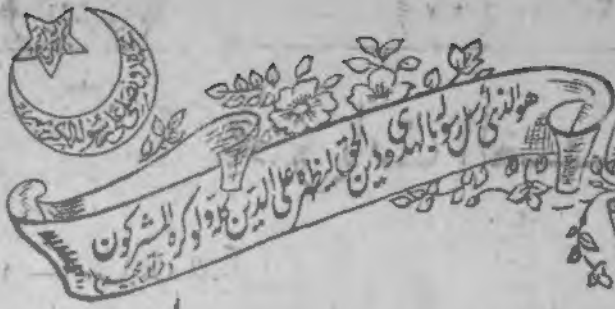 نحمده ونصلی علی رسوله الکریم
هو الذی ارسل رسوله بالهدی ودین الحق لیظهره علی الدین کله ولو کره المشرکون